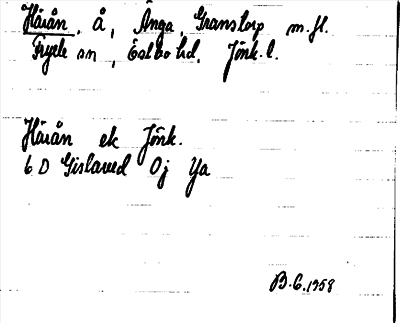 Härån, å, Ånga, Granstorp m.fl.
Fryele sn, Östbo hd. Jönk. l.
Härån ek Jönk.
6 D Gislaved Oj Ya
B.G. 1958